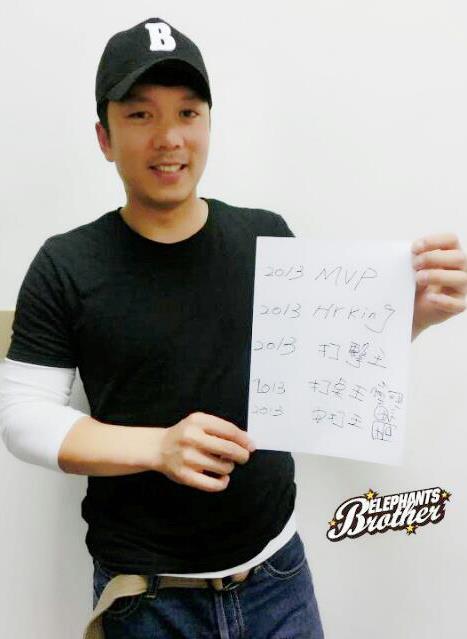 B
2013 MVP
2013 HrKing
2013 打擊王
2013 打点王
2013 安打王
ELEPHANTS
Brother